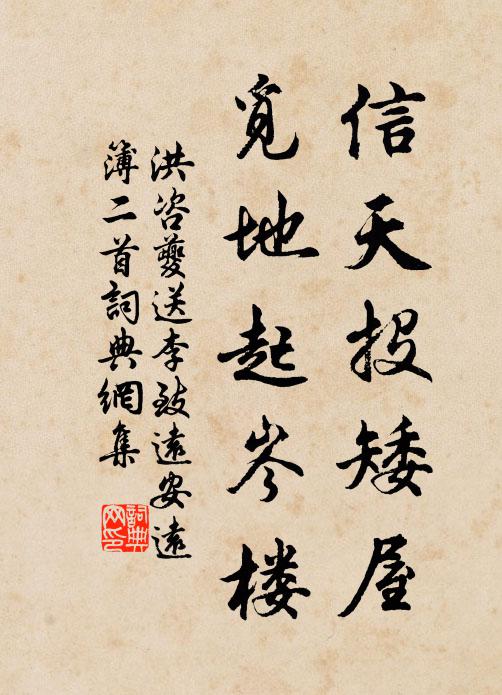 信天投矮屋
觅地起岑楼
洪咨夔送李致遠安遠
簿二首詞典網集
詞典
网印